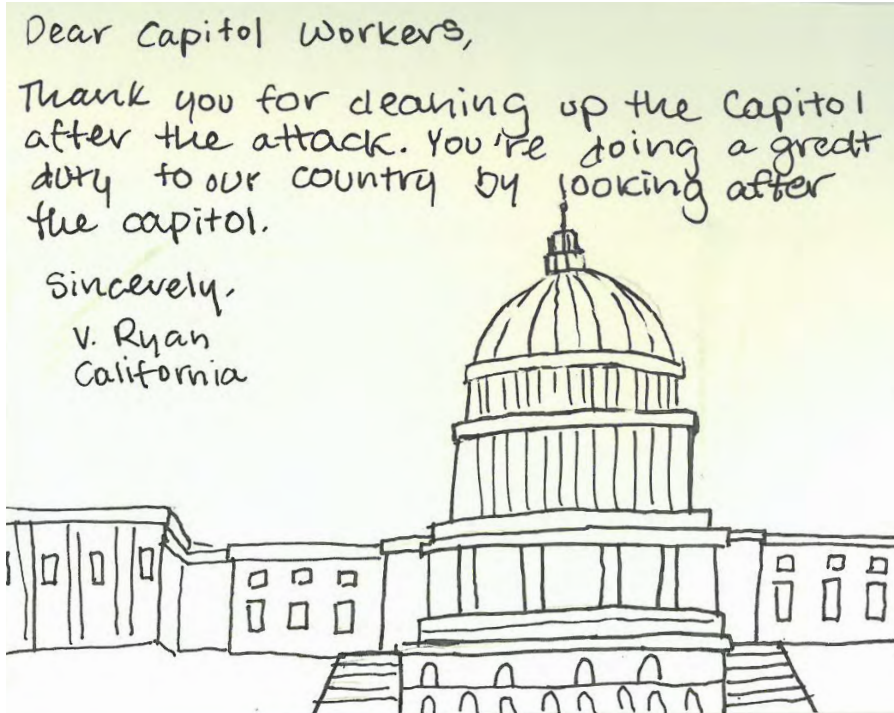 Dear Capitol Workers,
Thank you for cleaning up the Capitol
after the attack. You're doing a great
duty to our country by looking after
the capitol.
Sincerely,
V. Ryan
California